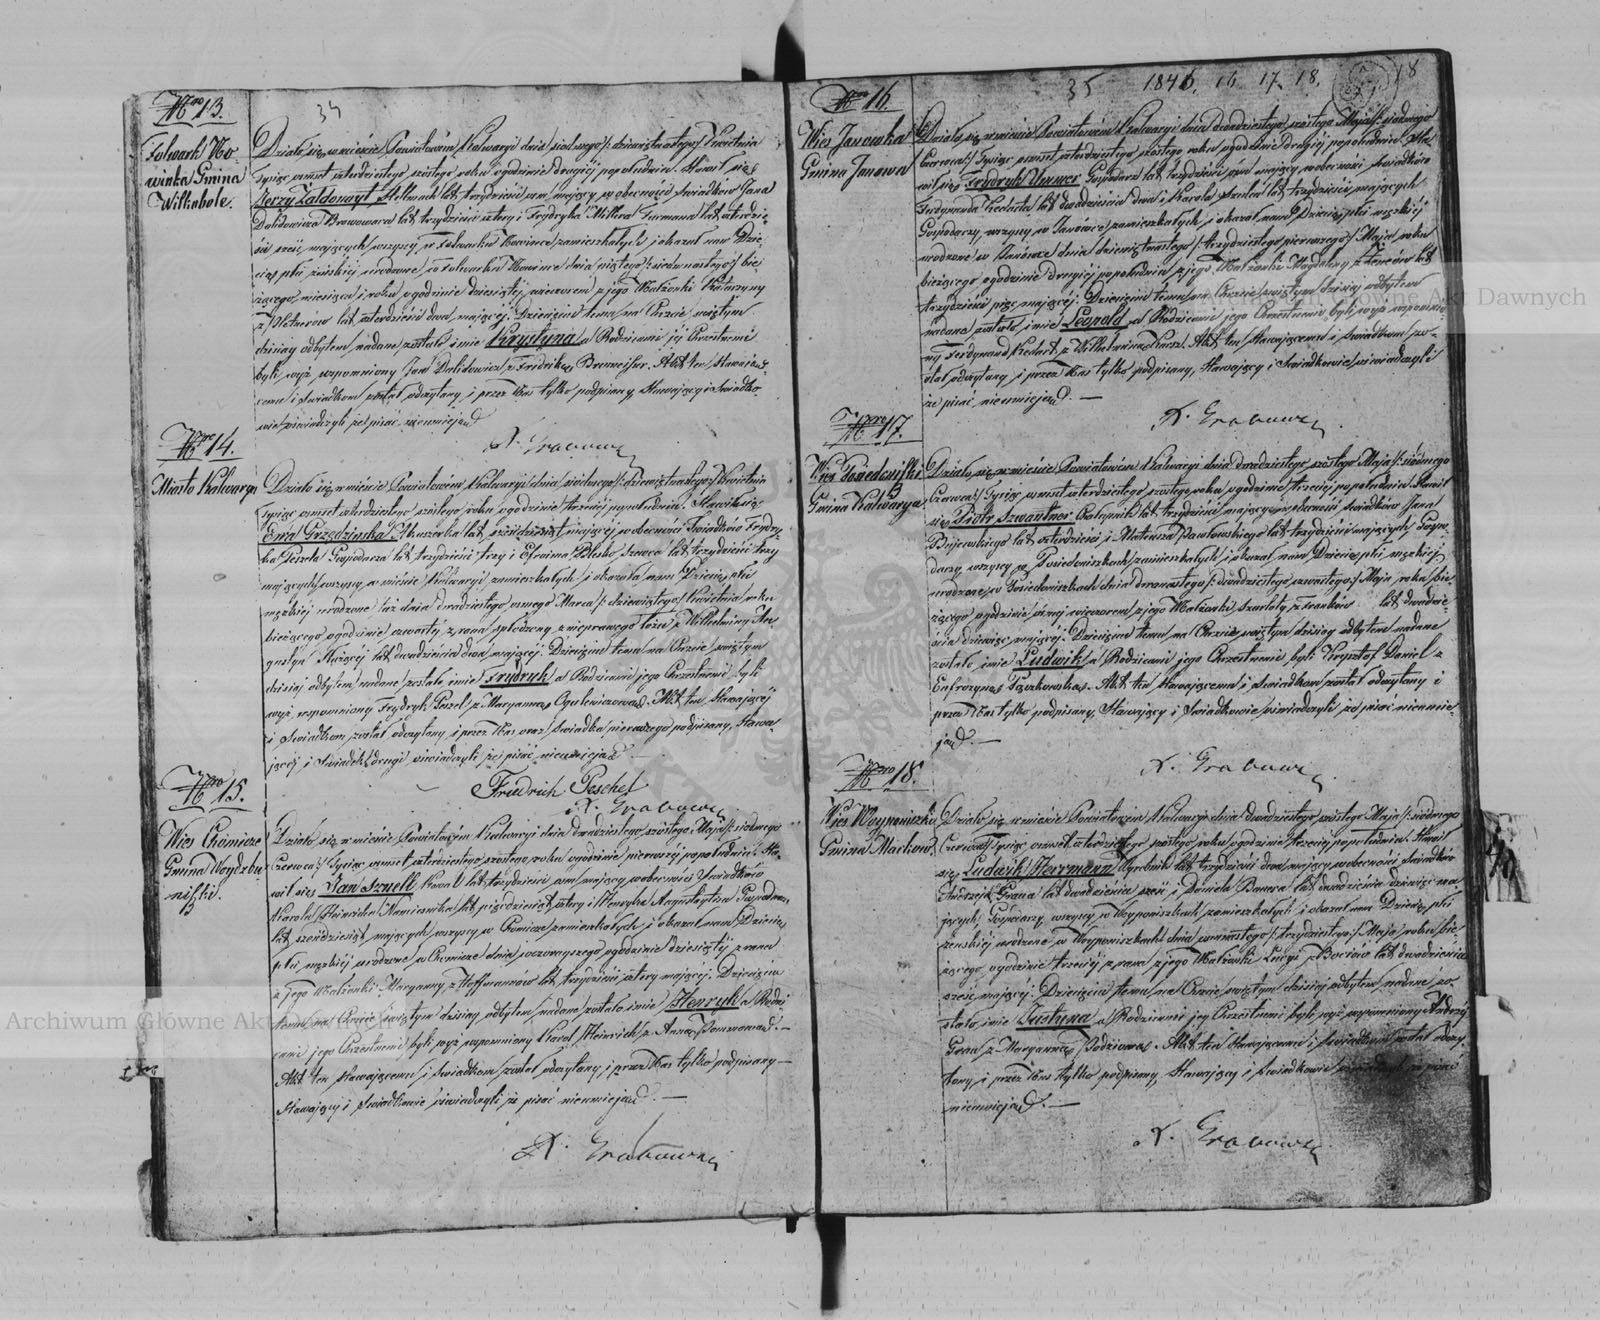 34
Nro 13.
Folwark No
winka Gmina
Wilkobole.
Działo się w mieście Powiatowém Kalwaryi dnia siódmego /: dziewiętnastego :/ Kwietnia
Tysiąc ośmset czterdziestego szóstego roku o godzinie drugiéj popołudniu. Stawił się
Jerzy Stellmach lat trzydzieści ośm mający w obecności świadków Jana
Dalidowicza Browarnara lat trzydzieści cztery i Frydryka Millera Furmana lat czterdzie-
ści sześć mających wszyscy w Folwarku Nowince zamieszkałych i okazał nam Dzie-
cię płci żeńskiéj urodzone w Folwarku Nowince dnia piątego /: siedmnastego :/ bie-
żącego miesiąca i roku o godzinie dziesiątéj wieczorem z jego Małżonki Katarzyny
z lat czterdzieści dwa mającéj. Dziecięciu temu na Chrzcie świętym
dzisiaj odbytem nadane zostało imie Krystyna a Rodzicami jéj Chrzestnemi
byli wyż wspomniony Jan Dalidowicz z Fridriką. Akt ten stawające-
cemu i świadkom został odczytany i przez Nas tylko podpisany, stawający i świadko-
wie oświadczyli że pisać nieumieją.
X. Grabowski
Nro 14.
Miasto Kalwarya
Działo się w mieście Powiatowém Kalwaryi dnia siódmego /: dziewiętnastego :/ Kwietnia
Tysiąc ośmset czterdziestego szóstego roku o godzinie trzeciéj popołudniu. Stawiła się
Ewa Akuszerka lat sześćdziesiąt mająca w obecności świadków Frydry-
ka Peszla Gospodarza lat trzydzieści trzy i Szewca lat trzydzieści trzy
mających wszyscy w mieście Kalwaryi zamieszkałych i okazała nam Dziecię płci
męzkiéj urodzone tu dnia dwudziestego ósmego Marca /: dziewiątego :/ Kwietnia roku
bieżącego o godzinie czwartéj z rana spłodzony z nieprawego łoża z Wilhelminy Au-
gustyn Służącéj lat dwadzieścia dwa mającéj. Dziecięciu temu na Chrzcie świętym
dzisiaj odbytem nadane zostało imie Frydryk a Rodzicami jego Chrzestnemi byli
wyż wspomniony Frydryk Peszel z Maryanną Ogulewiczową. Akt ten stawającéj
i świadkom został odczytany i przez Nas oraz świadka pierwszego podpisany, stawa-
jąca i świadek drugi oświadczyli że pisać nieumieją
Friedrich Peschel
X. Grabowski
Nro 15.
Wieś Chomicze
Gmina Woyzbu-
niszki.
Działo się w mieście Powiatowém Kalwaryi dnia dwudziestego szóstego Maja /: siódmego
Czerwca :/ Tysiąc ośmset czterdziestego szóstego roku o godzinie pierwszéj popołudniu. Sta-
wił się Jan Sznell Kowal lat trzydzieści ośm mający w obecności świadków
Karola Heinricha lat pięćdziesiąt cztery i Henryka Augustytisa Gospodarza
lat sześćdziesiąt mających wszyscy w Chomicze zamieszkałych i okazał nam Dziecię
płci męzkiéj urodzone w Chomicze dnia wczorajszego o godzinie dziesiątéj z rana
z jego Małżonki Maryanny z Hoffmanów lat trzydzieści cztery mającéj. Dziecięciu
temu na Chrzcie świętym dzisiaj odbytem nadane zostało imie Henryk a Rodzi-
cami jego Chrzestnemi byli wyż wspomniony Karol Heinrich z Anną. —
Akt ten stawającemu i świadkom został odczytany i przez Nas tylko podpisany —
stawający i świadkowie oświadczyli że pisać nieumieją. —
X. Grabowski
35 1846. 16. 17. 18. 18
Nro 16.
Wieś Janówka
Gmina Janowa
Działo się w mieście Powiatowém Kalwaryi dnia dwudziestego szóstego Maja /: siódmego
Czerwca :/ Tysiąc ośmset czterdziestego szóstego roku o godzinie drugiéj popołudniu. Sta-
wił się Frydryk Ummer Gospodarz lat trzydzieści ośm mający w obecności świadków
Ferdynanda lat dwadzieścia dwa i Karola lat trzydzieści mających
Gospodarzy, wszyscy w Janówce zamieszkałych i okazał nam Dziecię płci męzkiéj
urodzone w Janówce dnia dziewiętnastego /: trzydziestego pierwszego :/ Maja roku
bieżącego o godzinie drugiéj popołudniu z jego Małżonki Magdaleny z lat
trzydzieści pięć mającéj. Dziecięciu temu na Chrzcie świętym dzisiaj odbytem
nadane zostało imie Leopold a Rodzicami jego Chrzestnemi byli wyż wspomnio-
ny Ferdynand z Wilhelminą. Akt ten stawającemu i świadkom zo-
stał odczytany i przez Nas tylko podpisany, stawający i świadkowie oświadczyli
że pisać nieumieją. —
X. Grabowski
Nro 17.
Wieś Posiedoniszki
Gmina Kalwarya
Działo się w mieście Powiatowém Kalwaryi dnia dwudziestego szóstego Maja /: siódmego
Czerwca :/ Tysiąc ośmset czterdziestego szóstego roku o godzinie trzeciéj popołudniu. Stawił
się Piotr Szwantner Chałupnik lat trzydzieści mający w obecności świadków Jana
Bujewskiego lat czterdzieści i Mateusza Pawłowskiego lat trzydzieści mających Gospo-
darzy, wszyscy w Posiedoniszkach zamieszkałych i okazał nam Dziecię płci męzkiéj
urodzone w Posiedoniszkach dnia dwunastego /: dwudziestego czwartego :/ Maja roku bie-
żącego o godzinie ósméj wieczorem z jego Małżonki Szarloty z Franków lat dwadzie-
ścia dziewięć mającéj. Dziecięciu temu na Chrzcie świętym dzisiaj odbytem nadane
zostało imie Ludwik a Rodzicami jego Chrzestnemi byli Krysztof Daniel z
Eufrozyną. Akt ten stawającemu i świadkom został odczytany i
przez Nas tylko podpisany, stawający i świadkowie oświadczyli że pisać nieumie-
ją. —
X. Grabowski
Nro 18.
Wieś Woyponiszki
Gmina Marków.
Działo się w mieście Powiatowém Kalwaryi dnia dwudziestego szóstego Maja /: siódmego
Czerwca :/ Tysiąc ośmset czterdziestego szóstego roku o godzinie trzeciéj popołudniu. Stawił
się Ludwik Herrmann Wyrobnik lat trzydzieści dwa mający w obecności świadków
Andrzeja Grana lat dwadzieścia sześć i Daniela Bauera lat dwadzieścia dziewięć ma-
jących, Gospodarzy, wszyscy w Woyponiszkach zamieszkałych i okazał nam Dziecię płci
żeńskiéj urodzone w Woyponiszkach dnia ośmnastego /: trzydziestego :/ Maja roku bie-
żącego o godzinie trzeciéj z rana z jego Małżonki Łucyi z lat dwadzieścia
sześć mającéj. Dziecięciu temu na Chrzcie świętym dzisiaj odbytem nadane zo-
stało imie Justyna a Rodzicami jéj Chrzestnemi byli wyż wspomniony Andrzéj
Gran z Maryanną. Akt ten stawającemu i świadkom został odczy-
tany i przez Nas tylko podpisany, stawający i świadkowie oświadczyli że pisać
nieumieją. —
X. Grabowski
Archiwum Główne Akt Dawnych
Archiwum Główne Akt Dawnych